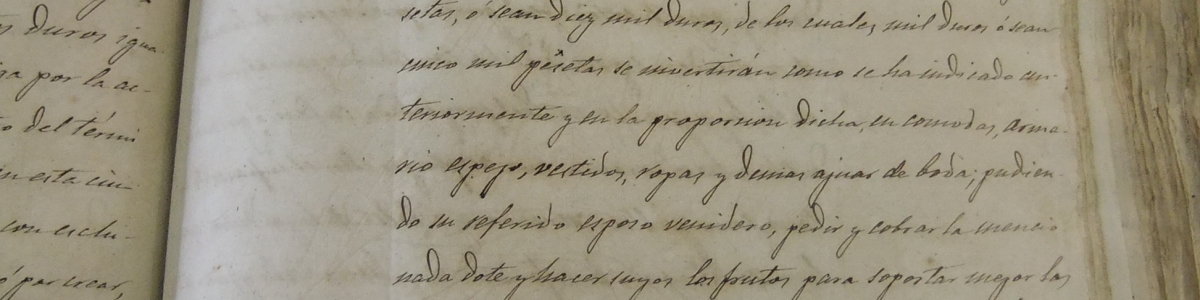 s duros igua
por la ac-
o del térmi
n esta ciu-
con esclu-
ó por crear,
setas, ó sean diez mil duros, de los cuales, mil duros ó sean
cinco mil pesetas se invertirán como se ha indicado an-
teriormente y en la proporcion dicha, en comodas, arma-
rio espejo, vestidos, ropas y demas ajuar de boda; pudien-
do su referido esposo venidero, pedir y cobrar la mencio
nada dote y hacer suyos los frutos para soportar mejor las